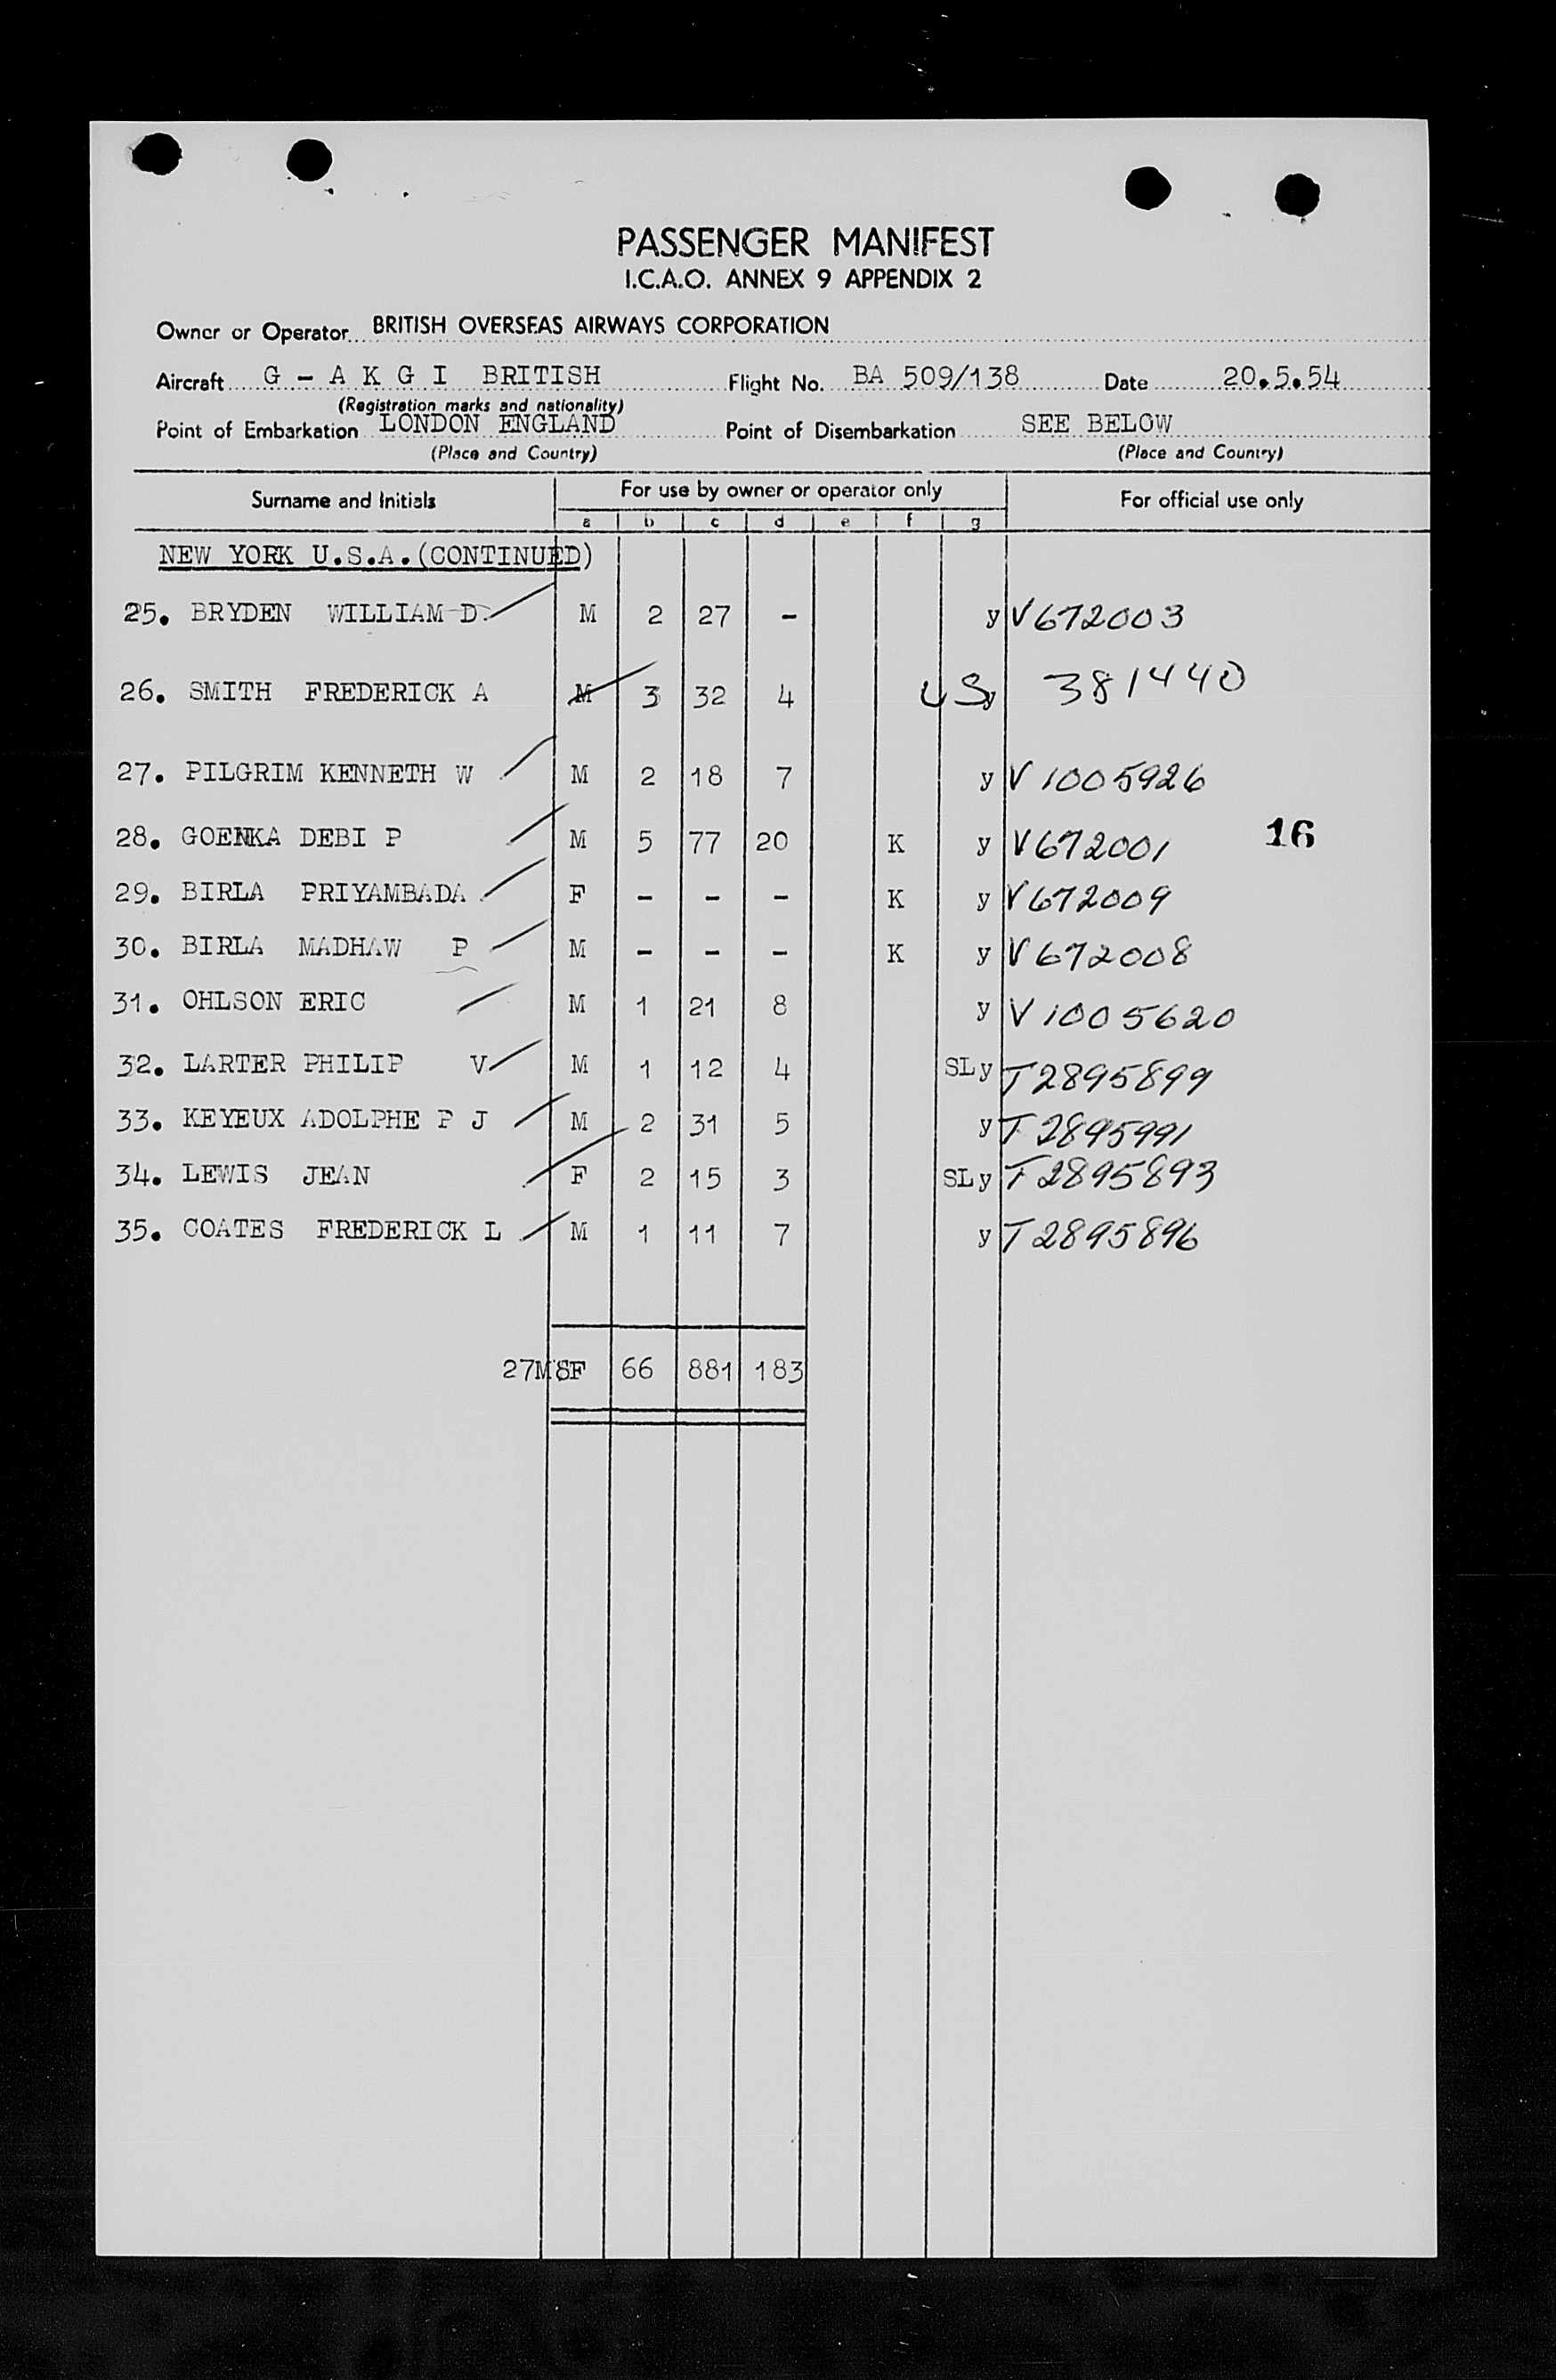 PASSENGER MANIFEST
I.C.A.O. ANNEX 9 APPENDIX 2
Owner or Operator BRITISH OVERSEAS AIRWAYS CORPORATION
Aircraft G - A K G I BRITISH Flight No. BA 509/138 Date 20.5.54
(Registration marks and nationality)
Point of Embarkation LONDON ENGLAND Point of Disembarkation SEE BELOW
(Place and Country) (Place and Country)
Surname and Initials For use by owner or operator only For official use only
a b c d e f g
NEW YORK U.S.A.(CONTINUED)
25. BRYDEN WILLIAM D. M 2 27 - y V672003
26. SMITH FREDERICK A M 3 32 4 US y 381440
27. PILGRIM KENNETH W M 2 18 7 y V 1005926
28. GOENKA DEBI P M 5 77 20 K y V672001 16
29. BIRLA PRIYAMBADA F - - - K y V672009
30. BIRLA MADHAW P M - - - K y V672008
31. OHLSON ERIC M 1 21 8 y V 1005620
32. LARTER PHILIP V M 1 12 4 SL y T2895899
33. KEYEUX ADOLPHE P J M 2 31 5 y T2895991
34. LEWIS JEAN F 2 15 3 SL y T2895893
35. COATES FREDERICK L M 1 11 7 y T2895896
27M 8F 66 881 183